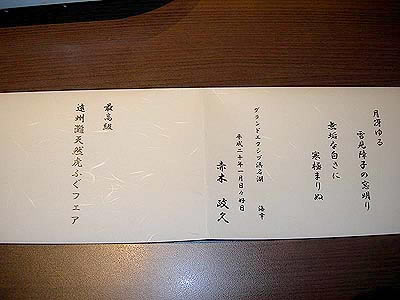 月冴ゆる
雪見障子の窓明り
無垢な白さに
寒極まりぬ
グランドエクシブ浜名湖
海幸
平成二十年一月日々好日
赤木 政久
最高級
遠州灘天然虎ふぐフェア